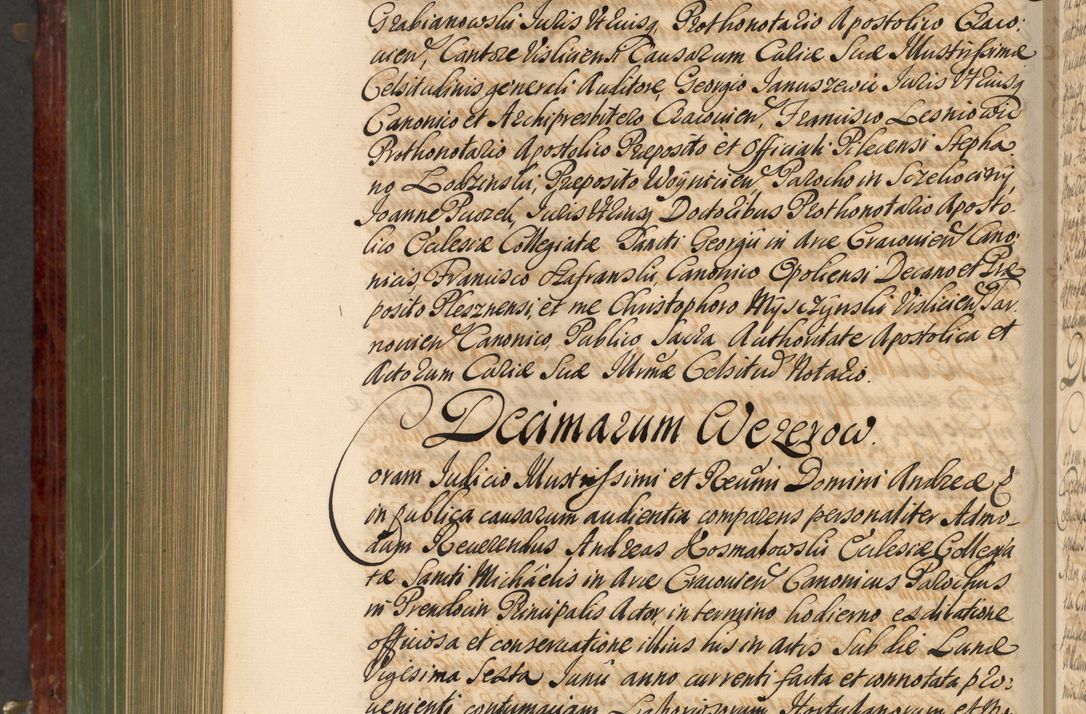 Grabianowski Juris Utriusq Prothonotario Apostolico Craco:
vien, Cantore Visliciensi Causarum Curiæ Suæ Illustrissimæ
Celsitudinis generali Auditore, Georgio Januszewic Juris Utriusq
Canonico et Archipresbitero Cracovien, Francisco Lesniowic
Prothonotario Apostolico Præposito et Officiali Pilecensi Stepha
no Lodzinski, Præposito Woynicien, Parocho in
Joanne Juris Utriusq Doctoribus Prothonotario Aposto-
lico Ecclesiæ Collegiatæ Sancti Georgii in Arce Cracovien Cano
nicis, Francisco Szafranski, Canonico Opoliensi Decano et Præ
posito Plesznensi, et me Christophoro Myszczynski Vislicien Tar
novien Canonico, Publico Sacra Authoritate Apostolica et
Actorum Curiæ Suæ Illrmæ Celsitud Notario.
Decimarum Wezerow.
Coram Judicio Illustrissimi et Reumi Domini Andreæ E
in publica causarum audientia comparens personaliter Admo-
dum Reuerendus Andreas Kosmatowski Ecclesiæ Collegia
tæ Sancti Michaelis in Arce Cracovien Canonicus Parochus
in Prendocin Principalis Actor, in termino hodierno ex dilatione
officiosa et conseruatione illius his in actis Sub die Lunæ
Vigesima Sexta Junii anno currenti facta et connotata pro:
uenienti, contumaciam Laboriosorum Hortulanorum et